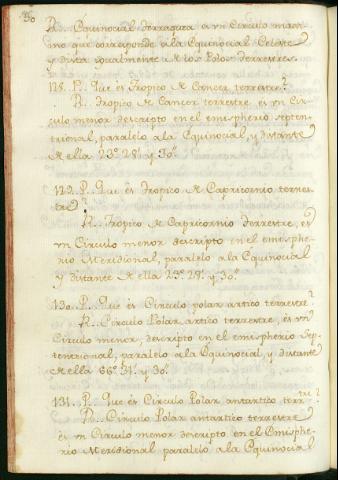 30
R. Equinocial Terraquea és vn Circulo maxi-
mo que corresponde ala Equinocial Celeste
y dista igualmente de los Polos Terrestres.
128. P. Que és Tropico de Cancer terrestre?
R. Tropico de Cancer terrestre, és vn Cir-
culo menor descripto en el emispherio septen-
trional, paralelo ala Equinocial, y distante
de ella 23.º 28.' y 30."
129. P. Que és Tropico de Capricornio terres-
tre?
R. Tropico de Capricornio Terrestre, és
vn Circulo menor descripto en el emisphe-
rio Meridional, paralelo ala Equinocial
y distante de ella 23.º 28.' y 30."
130. P. Que és Circulo polar artico terrestre?
R. Circulo Polar artico terrestre, és vn
Circulo menor, descripto en el emispherio Sep-
tentrional, paralelo ala Equinocial, y distante
de ella 66.º 31. y 30.
131. P. Que és Circulo Polar antartico terrtre?
R. Circulo Polar antartico terrestre
és vn Circulo menor descripto en el Emisphe-
rio Meridional paralelo ala Equinocial